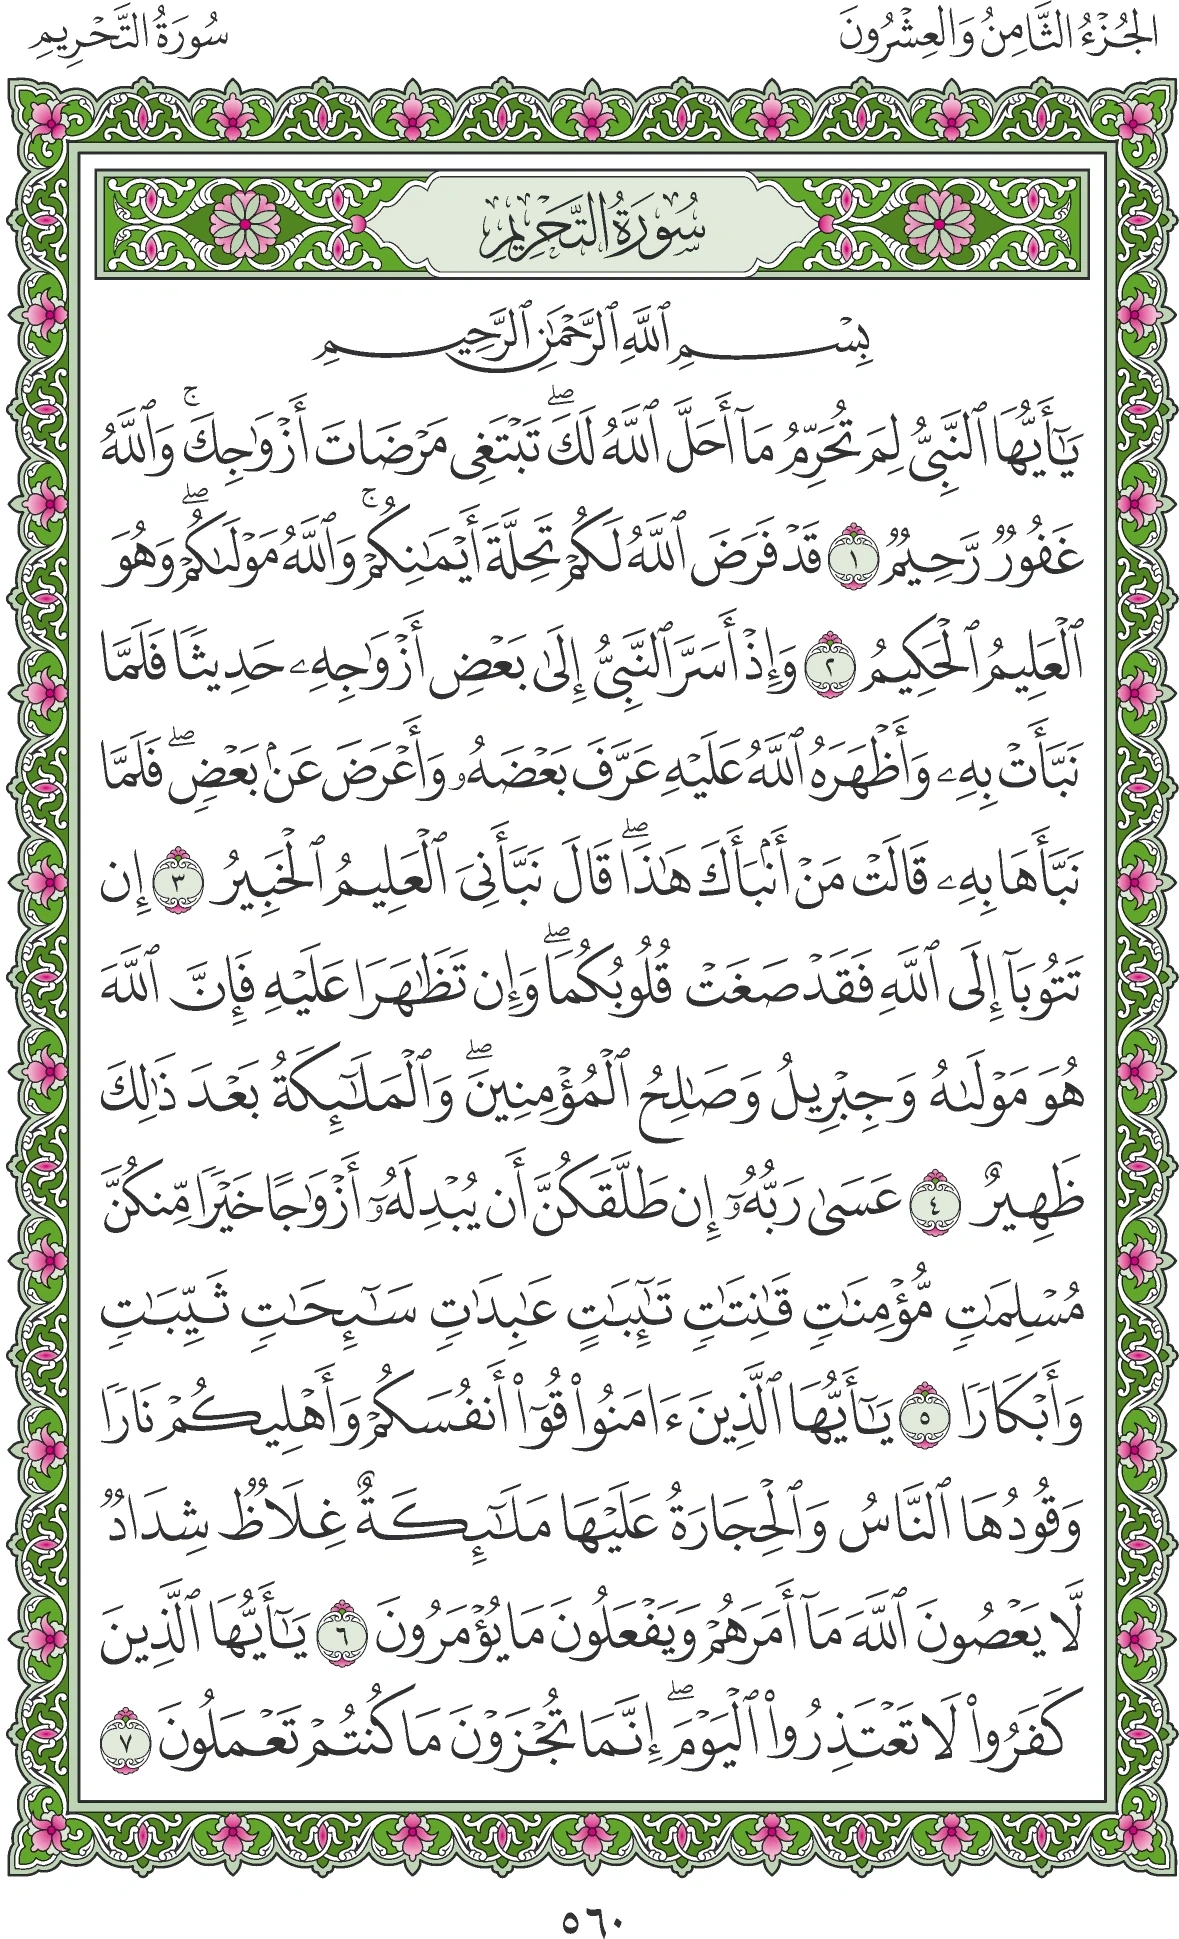 الجُزْءُ الثَّامِنُ وَالعِشْرُونَ
سُورَةُ التَّحْرِيمِ
سُورَةُ التَّحْرِيمِ
بِسْمِ ٱللَّهِ ٱلرَّحْمَٰنِ ٱلرَّحِيمِ
يَٰٓأَيُّهَا ٱلنَّبِيُّ لِمَ تُحَرِّمُ مَآ أَحَلَّ ٱللَّهُ لَكَۖ تَبْتَغِى مَرْضَاتَ أَزْوَٰجِكَۚ وَٱللَّهُ
غَفُورٌ رَّحِيمٌ ١ قَدْ فَرَضَ ٱللَّهُ لَكُمْ تَحِلَّةَ أَيْمَٰنِكُمْۚ وَٱللَّهُ مَوْلَىٰكُمْۖ وَهُوَ
ٱلْعَلِيمُ ٱلْحَكِيمُ ٢ وَإِذْ أَسَرَّ ٱلنَّبِيُّ إِلَىٰ بَعْضِ أَزْوَٰجِهِۦ حَدِيثًا فَلَمَّا
نَبَّأَتْ بِهِۦ وَأَظْهَرَهُ ٱللَّهُ عَلَيْهِ عَرَّفَ بَعْضَهُۥ وَأَعْرَضَ عَنۢ بَعْضٍۖ فَلَمَّا
نَبَّأَهَا بِهِۦ قَالَتْ مَنْ أَنۢبَأَكَ هَٰذَاۖ قَالَ نَبَّأَنِىَ ٱلْعَلِيمُ ٱلْخَبِيرُ ٣ إِن
تَتُوبَآ إِلَى ٱللَّهِ فَقَدْ صَغَتْ قُلُوبُكُمَاۖ وَإِن تَظَٰهَرَا عَلَيْهِ فَإِنَّ ٱللَّهَ
هُوَ مَوْلَىٰهُ وَجِبْرِيلُ وَصَٰلِحُ ٱلْمُؤْمِنِينَۖ وَٱلْمَلَٰٓئِكَةُ بَعْدَ ذَٰلِكَ
ظَهِيرٌ ٤ عَسَىٰ رَبُّهُۥٓ إِن طَلَّقَكُنَّ أَن يُبْدِلَهُۥٓ أَزْوَٰجًا خَيْرًا مِّنكُنَّ
مُسْلِمَٰتٍ مُّؤْمِنَٰتٍ قَٰنِتَٰتٍ تَٰٓئِبَٰتٍ عَٰبِدَٰتٍ سَٰٓئِحَٰتٍ ثَيِّبَٰتٍ
وَأَبْكَارًا ٥ يَٰٓأَيُّهَا ٱلَّذِينَ ءَامَنُوا۟ قُوٓا۟ أَنفُسَكُمْ وَأَهْلِيكُمْ نَارًا
وَقُودُهَا ٱلنَّاسُ وَٱلْحِجَارَةُ عَلَيْهَا مَلَٰٓئِكَةٌ غِلَاظٌ شِدَادٌ
لَّا يَعْصُونَ ٱللَّهَ مَآ أَمَرَهُمْ وَيَفْعَلُونَ مَا يُؤْمَرُونَ ٦ يَٰٓأَيُّهَا ٱلَّذِينَ
كَفَرُوا۟ لَا تَعْتَذِرُوا۟ ٱلْيَوْمَۖ إِنَّمَا تُجْزَوْنَ مَا كُنتُمْ تَعْمَلُونَ ٧
٥٦٠